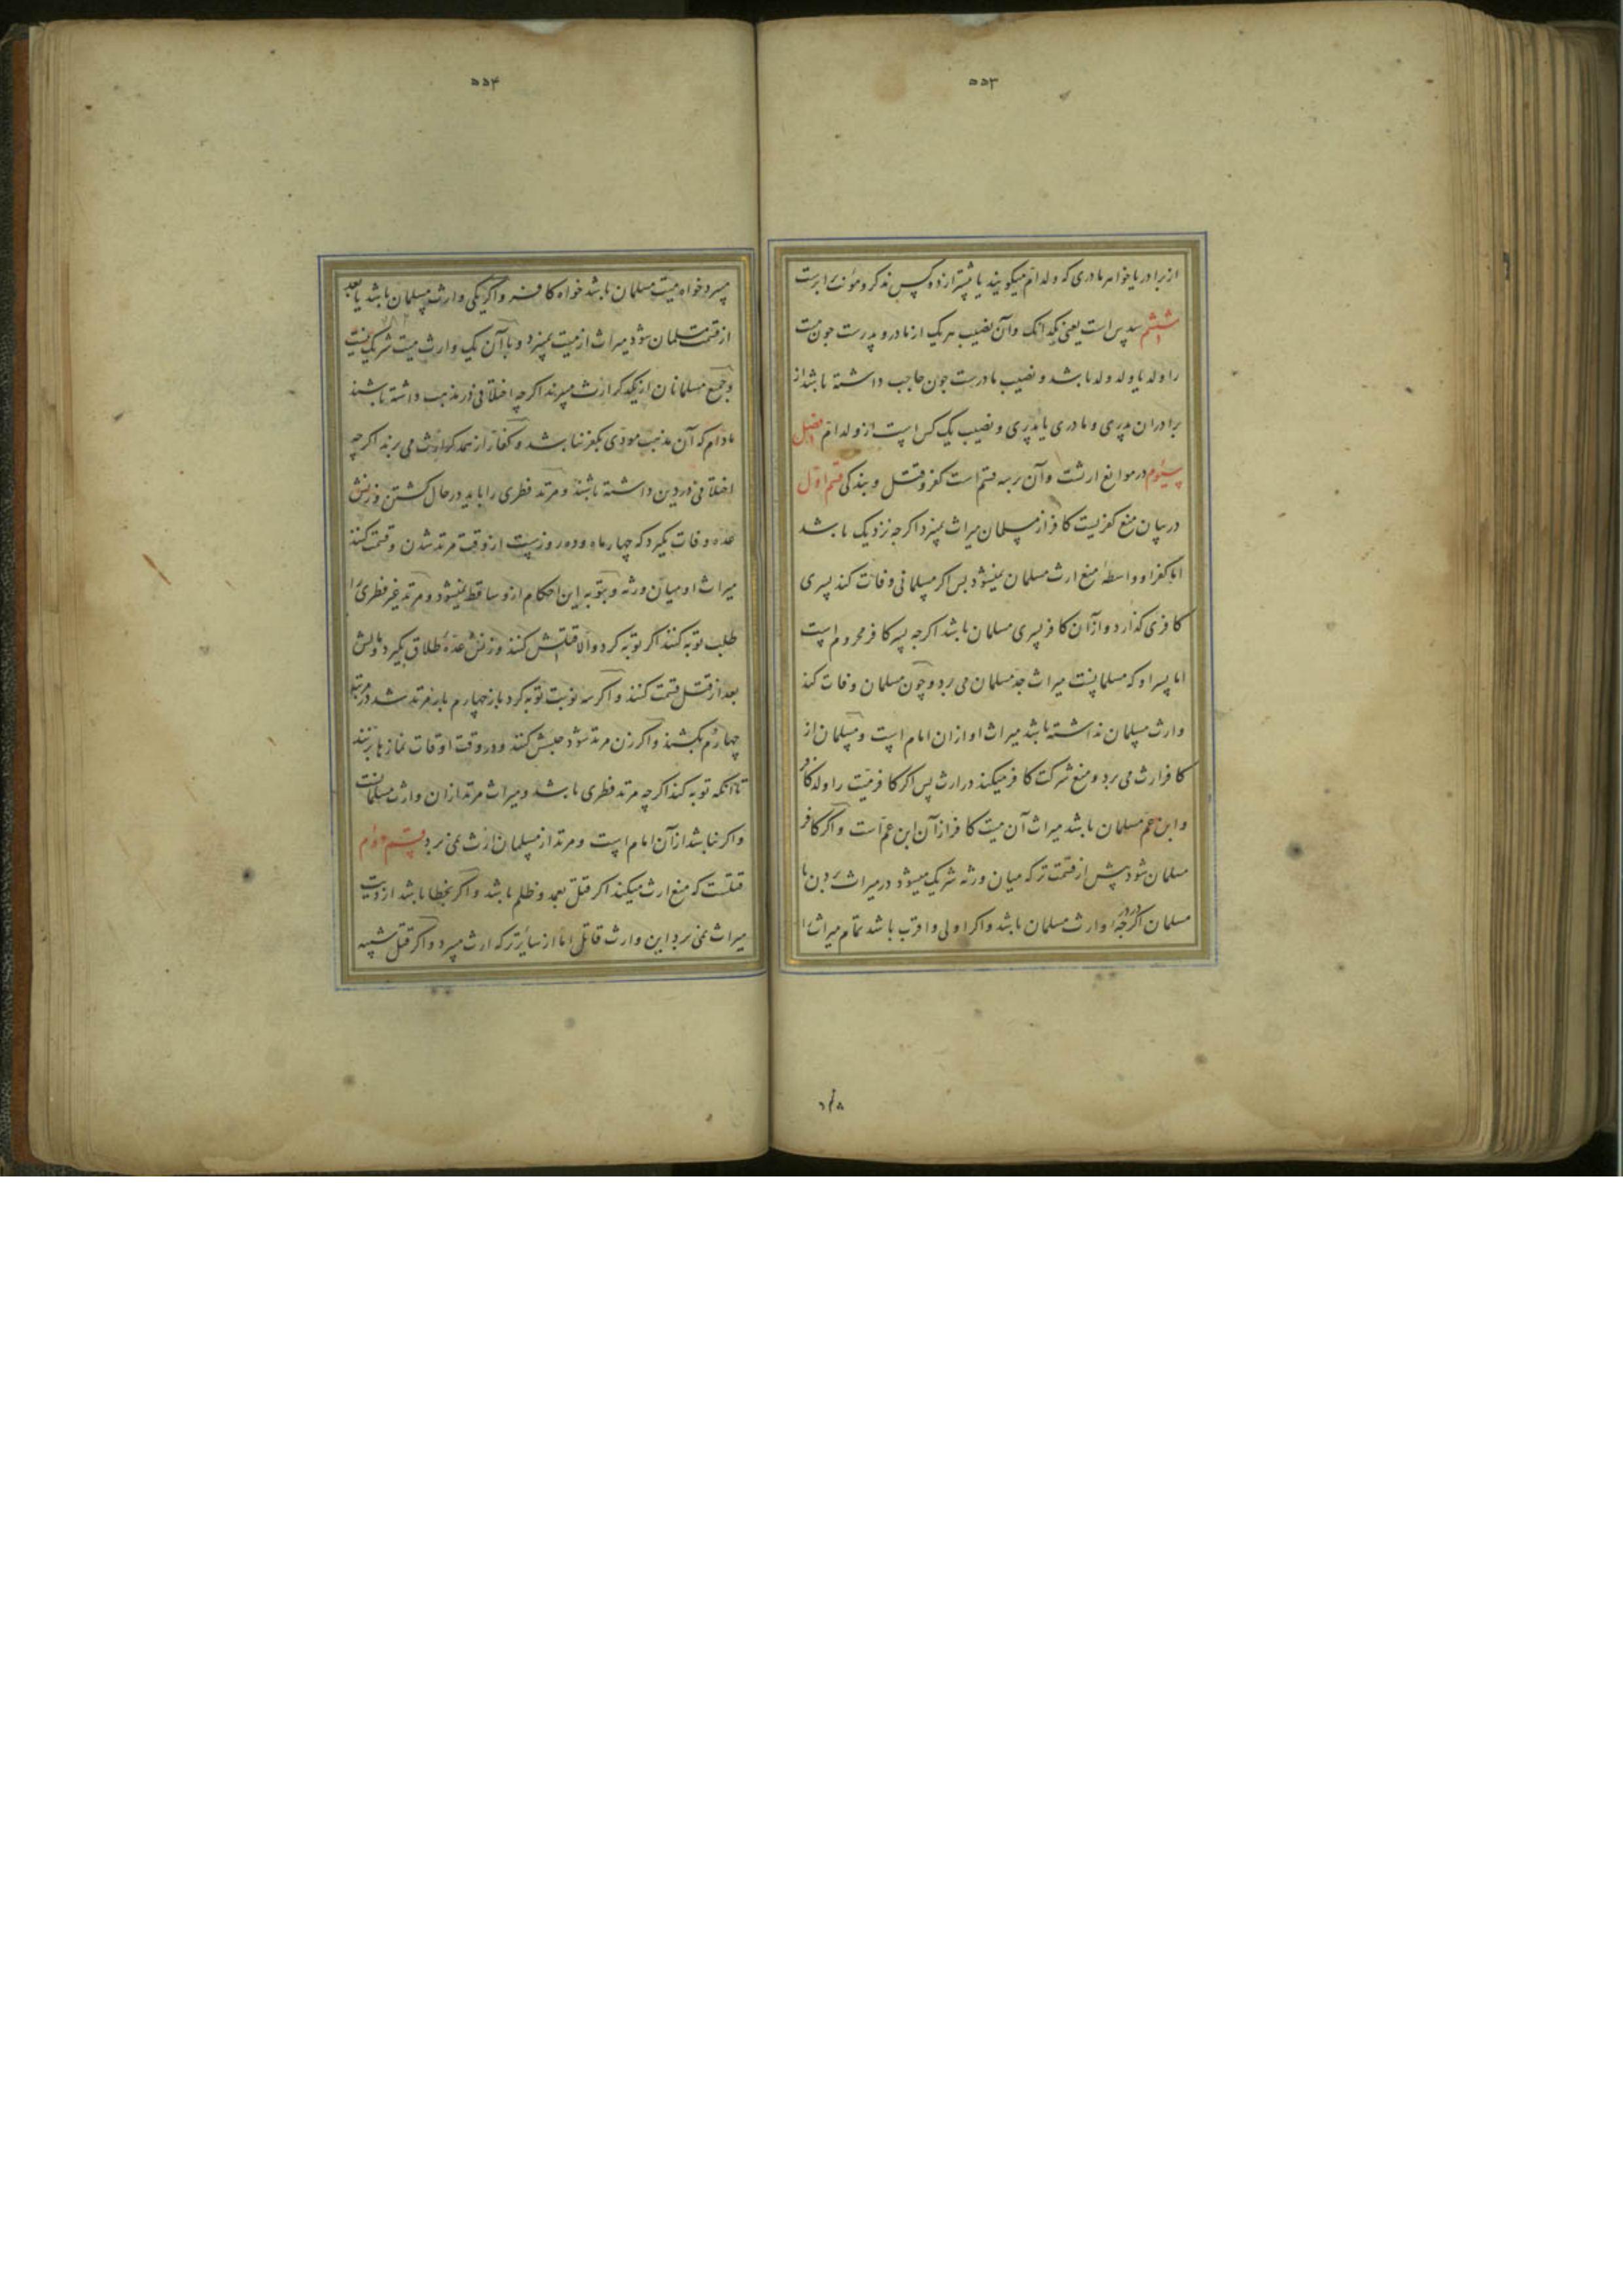 ۵۵۳
از برادر یا خواهر مادری که ولد ام میکویند یا بیشتر از دو کس مذکر و مؤنث برابرست
ششم سدس است یعنی یکدانک و آن نصیب هر یک از مادر و پدرست جون میت
را ولد یا ولد ولد باشد و نصیب مادرست جون حاجب داشته باشد از
برادران پدری و مادری یا پدری و نصیب یک کس است از ولد ام فصل
سیوم در موانع ارثست و آن بر سه قسم است کفر و قتل و بندکی قسم اول
در بیان منع کفریست کافر از مسلمان میراث نمیبرد اکرجه نزدیک باشد
اما کفر او واسطه منع ارث مسلمان نمیشود بس اکر مسلمانی وفات کند پسری
کافری کذارد و از آن کافر پسری مسلمان باشد اکرجه پسر کافر محروم است
اما پسر او که مسلمانست میراث جد مسلمان می برد و چون مسلمان وفات کند
وارث مسلمان نداشته باشد میراث او ازان امام است و مسلمان از
کافر ارث می برد و منع شرکت کافر میکند در ارث پس اکر کافر میت را ولد کافر
و ابن عم مسلمان باشد میراث آن میت کافر از آن ابن عم است و اکر کافر
مسلمان شود پیش از قسمت ترکه میان ورثه شریک میشود در میراث بردن با
مسلمان اکر در درجه او وارث مسلمان باشد و اکر اولی و اقرب باشد تمام میراث را
۵۵۴
میبرد خواه میت مسلمان باشد خواه کافر و اکر یکی وارث مسلمان باشد یا بعد
از قسمت مسلمان شود میراث از میت نمیبرد و با آن یک وارث میت شریک نیست
و جمیع مسلمانان از یکدکر ارث میبرند اکر چه اختلافی در مذهب داشته باشند
مادام که آن مذهب مودی بکفر نباشد و کفار از همدکر ارث می برند اکرچه
اختلافی در دین داشته باشند و مرتد فطری را باید در حال کشتن و زنش
عده وفات بکیرد که چهار ماه و ده روزست از وقت مرتد شدن و قسمت کنند
میراث او میان ورثه و بتوبه این احکام ازو ساقط نمیشود و مرتد غیر فطری را
طلب توبه کنند اکر توبه کرد و الا قتلش کنند و زنش عده طلاق بکیرد و مالش
بعد از قتل قسمت کنند و اکر سه نوبت توبه کرد باز چهارم بار مرتد شد در مرتبه
چهارم بکشند و اکر زن مرتد شود حبسش کنند و در وقت اوقات نمازها بزنند
تا آنکه توبه کند اکرچه مرتد فطری باشد و میراث مرتد ازان وارث مسلمانست
و اکر نباشد از آن امام است و مرتد از مسلمان ارث نمی برد قسم دوم
قتلست که منع ارث میکند اکر قتل بعمد و ظلم باشد و اکر بخطا باشد از دیت
میراث نمی برد این وارث قاتل اما از سایر ترکه ارث میبرد و اکر قتل شبیه